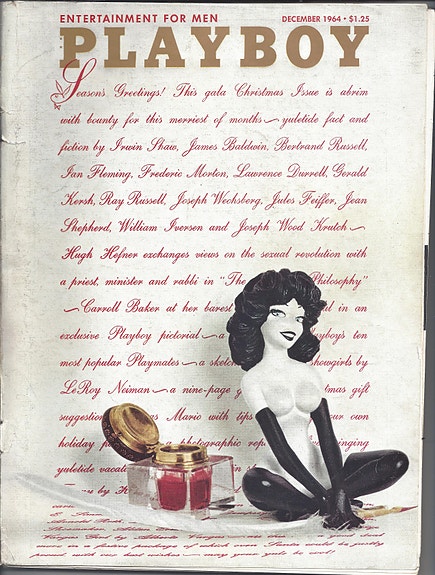 ENTERTAINMENT FOR MEN
DECEMBER 1964 • $1.25
PLAYBOY
Seasons Greetings! This gala Christmas Issue is abrim
with bounty for this merriest of months — yuletide fact and
fiction by Irwin Shaw, James Baldwin, Bertrand Russell,
Ian Fleming, Frederic Morton, Lawrence Durrell, Gerald
Kersh, Ray Russell, Joseph Wechsberg, Jules Feiffer, Jean
Shepherd, William Iversen and Joseph Wood Krutch —
Hugh Hefner exchanges views on the sexual revolution with
a priest, minister and rabbi in "The Philosophy"
— Carroll Baker at her barest in an
exclusive Playboy pictorial — a ten
most popular Playmates — a sketch showgirls by
LeRoy Neiman — a nine-page gift
suggestion Mario with tips own
holiday photographic
yuletide in
by